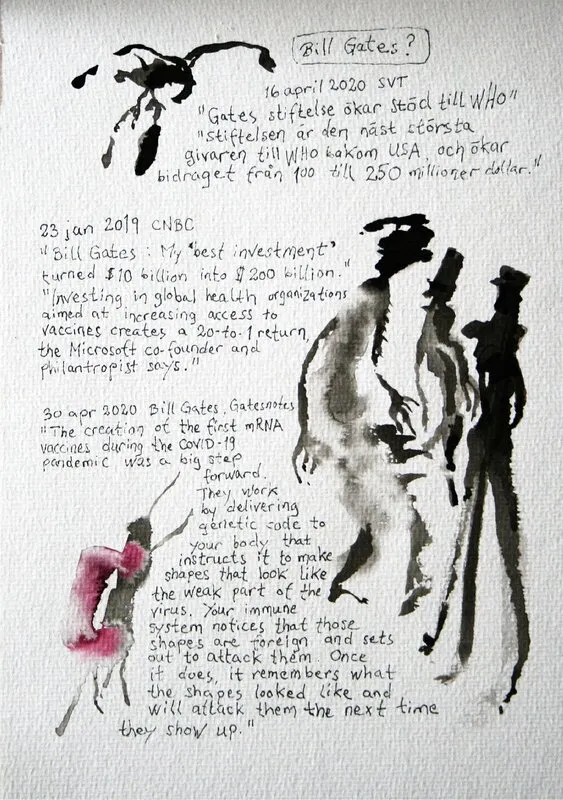 Bill Gates?
16 april 2020 SVT
"Gates stiftelse ökar stöd till WHO"
"Stiftelsen är den näst största
givaren till WHO bakom USA, och ökar
bidraget från 100 till 250 millioner dollar."
23 jan 2019 CNBC
"Bill Gates: My 'best investment'
turned $10 billion into $200 billion."
"Investing in global health organizations
aimed at increasing access to
vaccines creates a 20-to-1 return,
the Microsoft co-founder and
philantropist says."
30 apr 2020 Bill Gates, Gatesnotes
"The creation of the first mRNA
vaccines during the COVID-19
pandemic was a big step
forward.
They work
by delivering
genetic code to
your body that
instructs it to make
shapes that look like
the weak part of the
virus. Your immune
system notices that those
shapes are foreign and sets
out to attack them. Once
it does, it remembers what
the shapes looked like and
will attack them the next time
they show up."